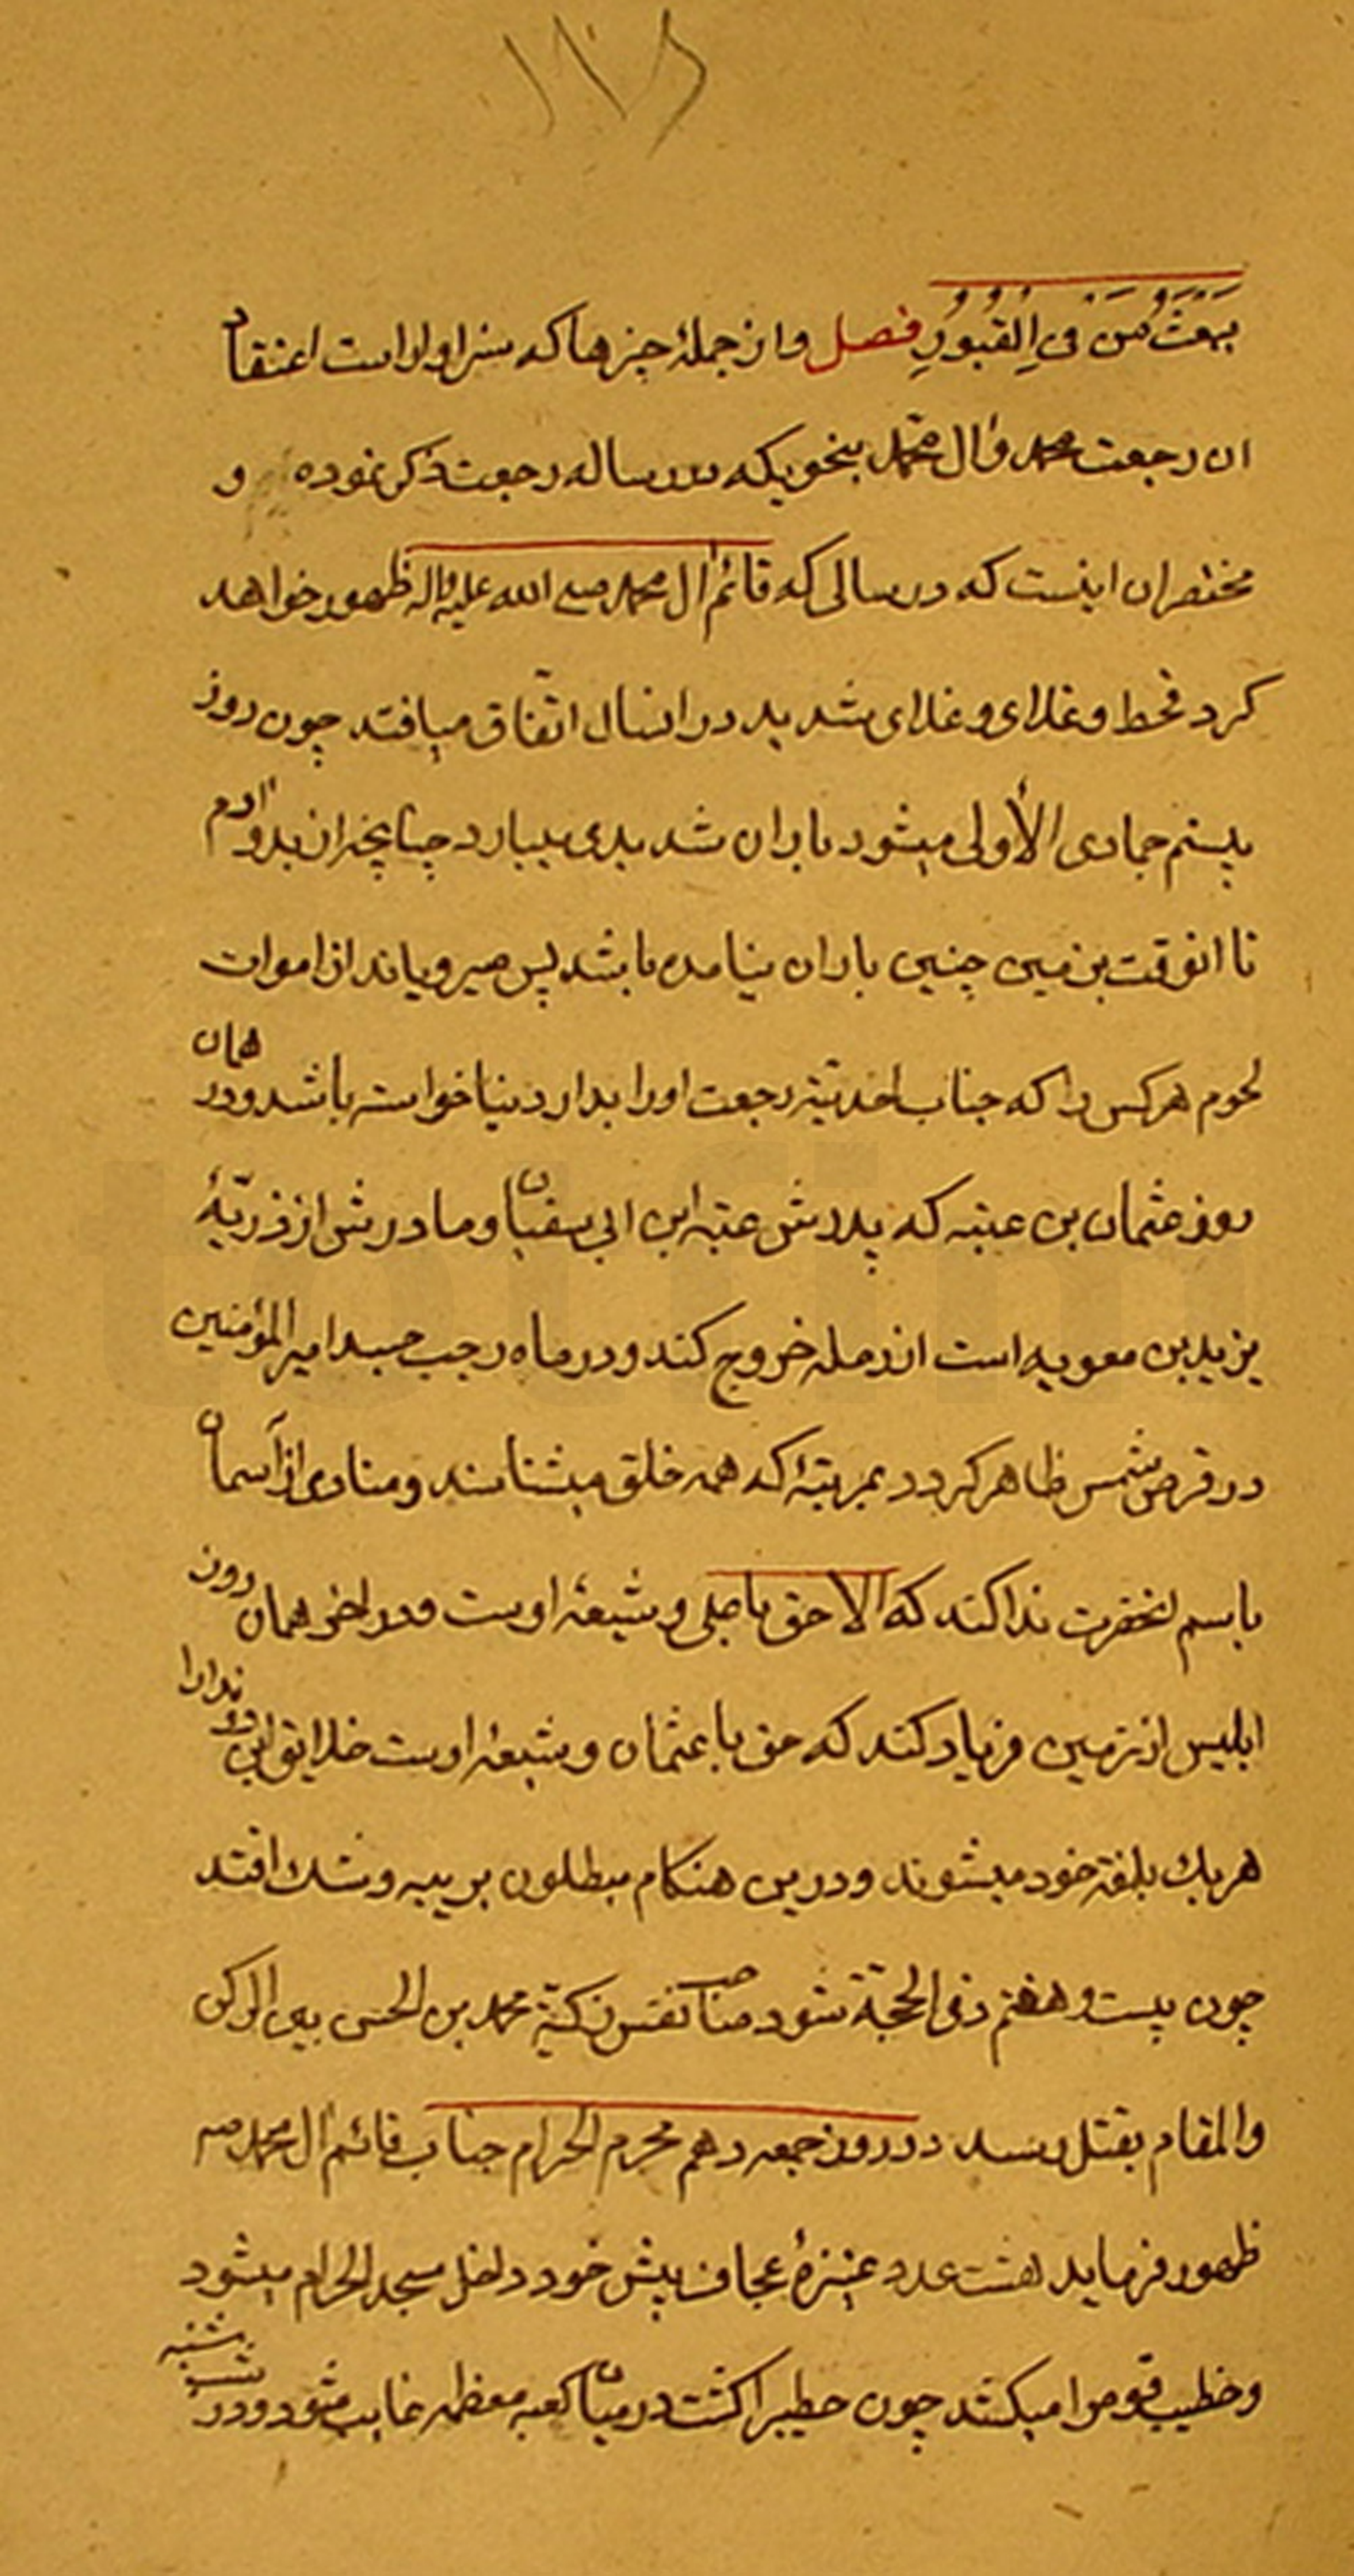 یبعث من فی القبور فصل و از جملهٔ چیزها که سزاوار است اعتقاد
ان رجعت محمد وال محمد بنحویکه در رساله رجعت ذکر نموده و
مختصر ان اینست که در سالی که قائم ال محمد صلی الله علیه واله ظهور خواهد
کرد قحط و غلای و غلای شدید در انسال اتفاق میافتد چون روز
بیستم جمادی الأولی میشود باران شدیدی ببارد چنانچه از بدو ادم
تا انوقت بزمین چنین باران نیامده باشد پس میرویاند از اموات
لحوم هر کس را که جناب احدیّة رجعت او را بدار دنیا خواسته باشد و در همان
روز عثمان بن عتبه که پدرش عتبه ابن ابی سفیان و مادرش از ذریّهٔ
یزید بن معویه است از رمله خروج کند و در ماه رجب جسد امیر المؤمنین
در قرص شمس ظاهر کردد بمرتبهٔ که همه خلق میشناسند و منادی از آسمان
باسم انحضرت ندا کند که الا حق با علی و شیعهٔ اوست و در اخر همان روز
ابلیس از زمین فریاد کند که حق با عثمان و شیعهٔ اوست خلایق این دو ندا را
هر یک بلغة خود میشنوند و درین هنکام مبطلون بریبه و شک افتند
چون بیست و هفتم ذی الحجة شود صاحب نفس زکیّة محمد بن الحسن بین الرکن
والمقام بقتل رسد در روز جمعه دهم محرم الحرام جناب قائم ال محمد ص
ظهور فرماید هشت عدد عنیزهٔ عجاف پیش خود داخل مسجد الحرام میشود
و خطیب قوم را میکشد چون خطیب را کشت در میان کعبه معظمه غایب شود و در شب شنبه